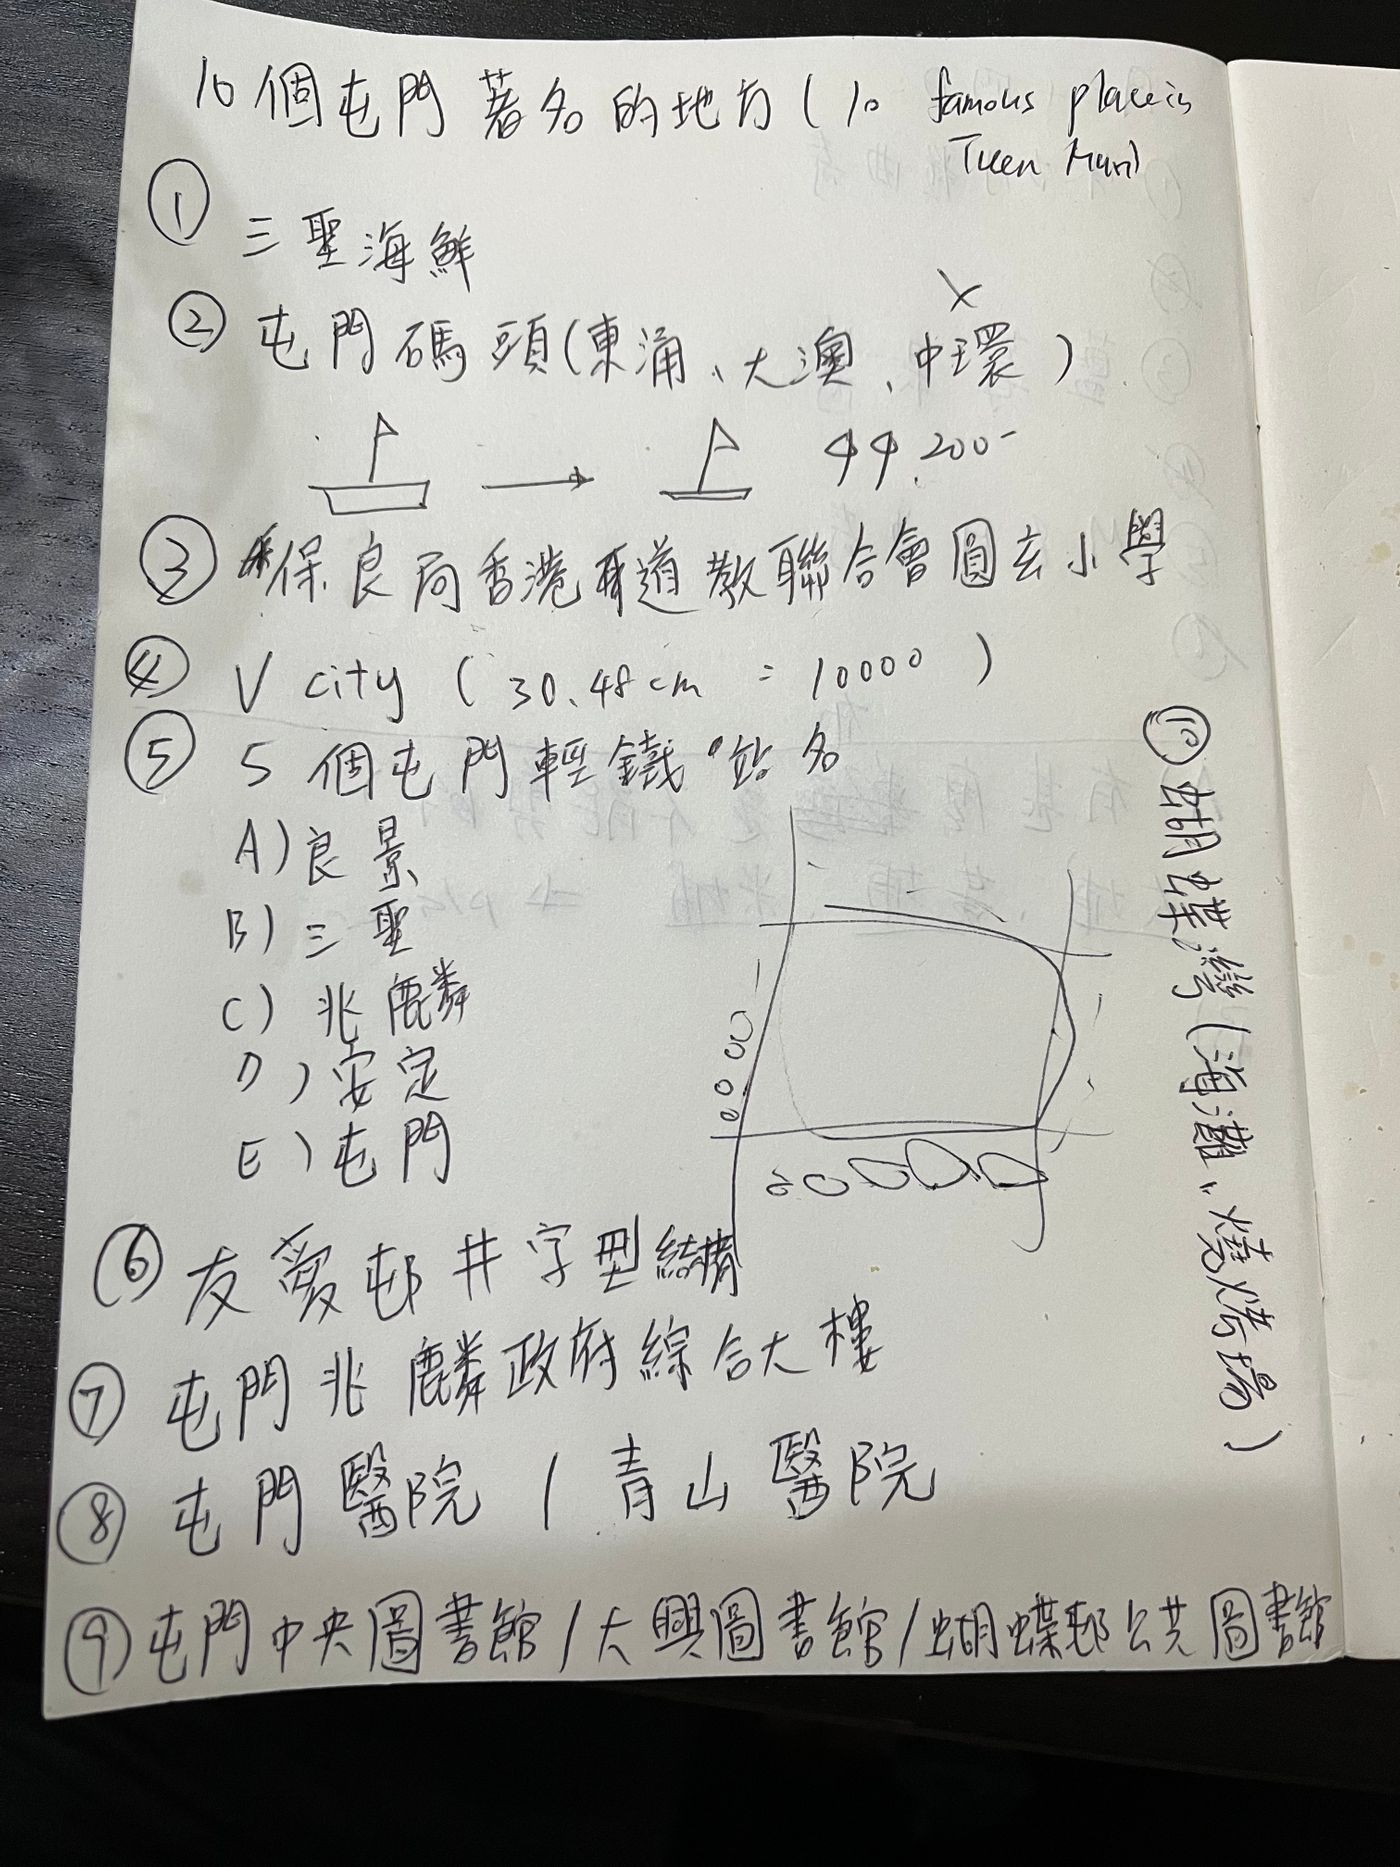 10個屯門著名的地方(10 famous place in
Tuen Mun)
① 三聖海鮮
② 屯門碼頭(東涌、大澳、中環)
44.200-
③ 保良局香港道教聯合會圓玄小學
④ V city (30.48cm = 10000)
⑤ 5個屯門輕鐵站名
A) 良景
B) 三聖
C) 兆麟
D) 安定
E) 屯門
⑥ 友愛邨井字型結構
⑦ 屯門兆麟政府綜合大樓
⑧ 屯門醫院/青山醫院
⑨ 屯門中央圖書館/大興圖書館/蝴蝶邨公共圖書館
⑩ 蝴蝶灣(海灘、燒烤場)